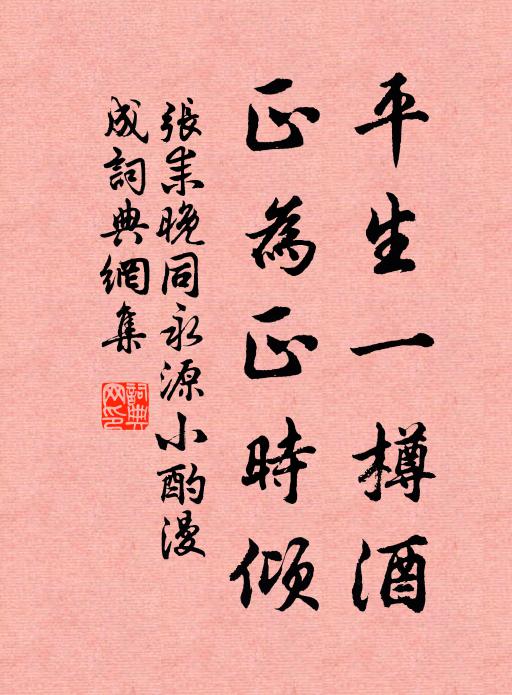 平生一樽酒
正為正時傾
張耒晚同永源小酌漫
成詞典網集
詞典
网印